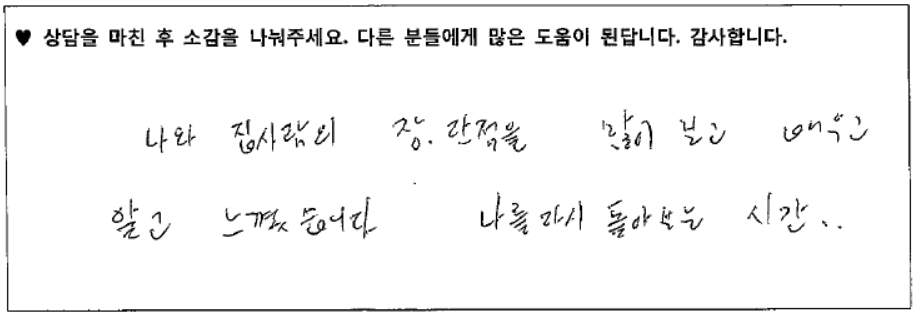 ♥ 상담을 마친 후 소감을 나눠주세요. 다른 분들에게 많은 도움이 된답니다. 감사합니다.
나와 집사람의 장.단점을 많이 보고 배우고
알고 느꼈습니다 나를 다시 돌아보는 시간..